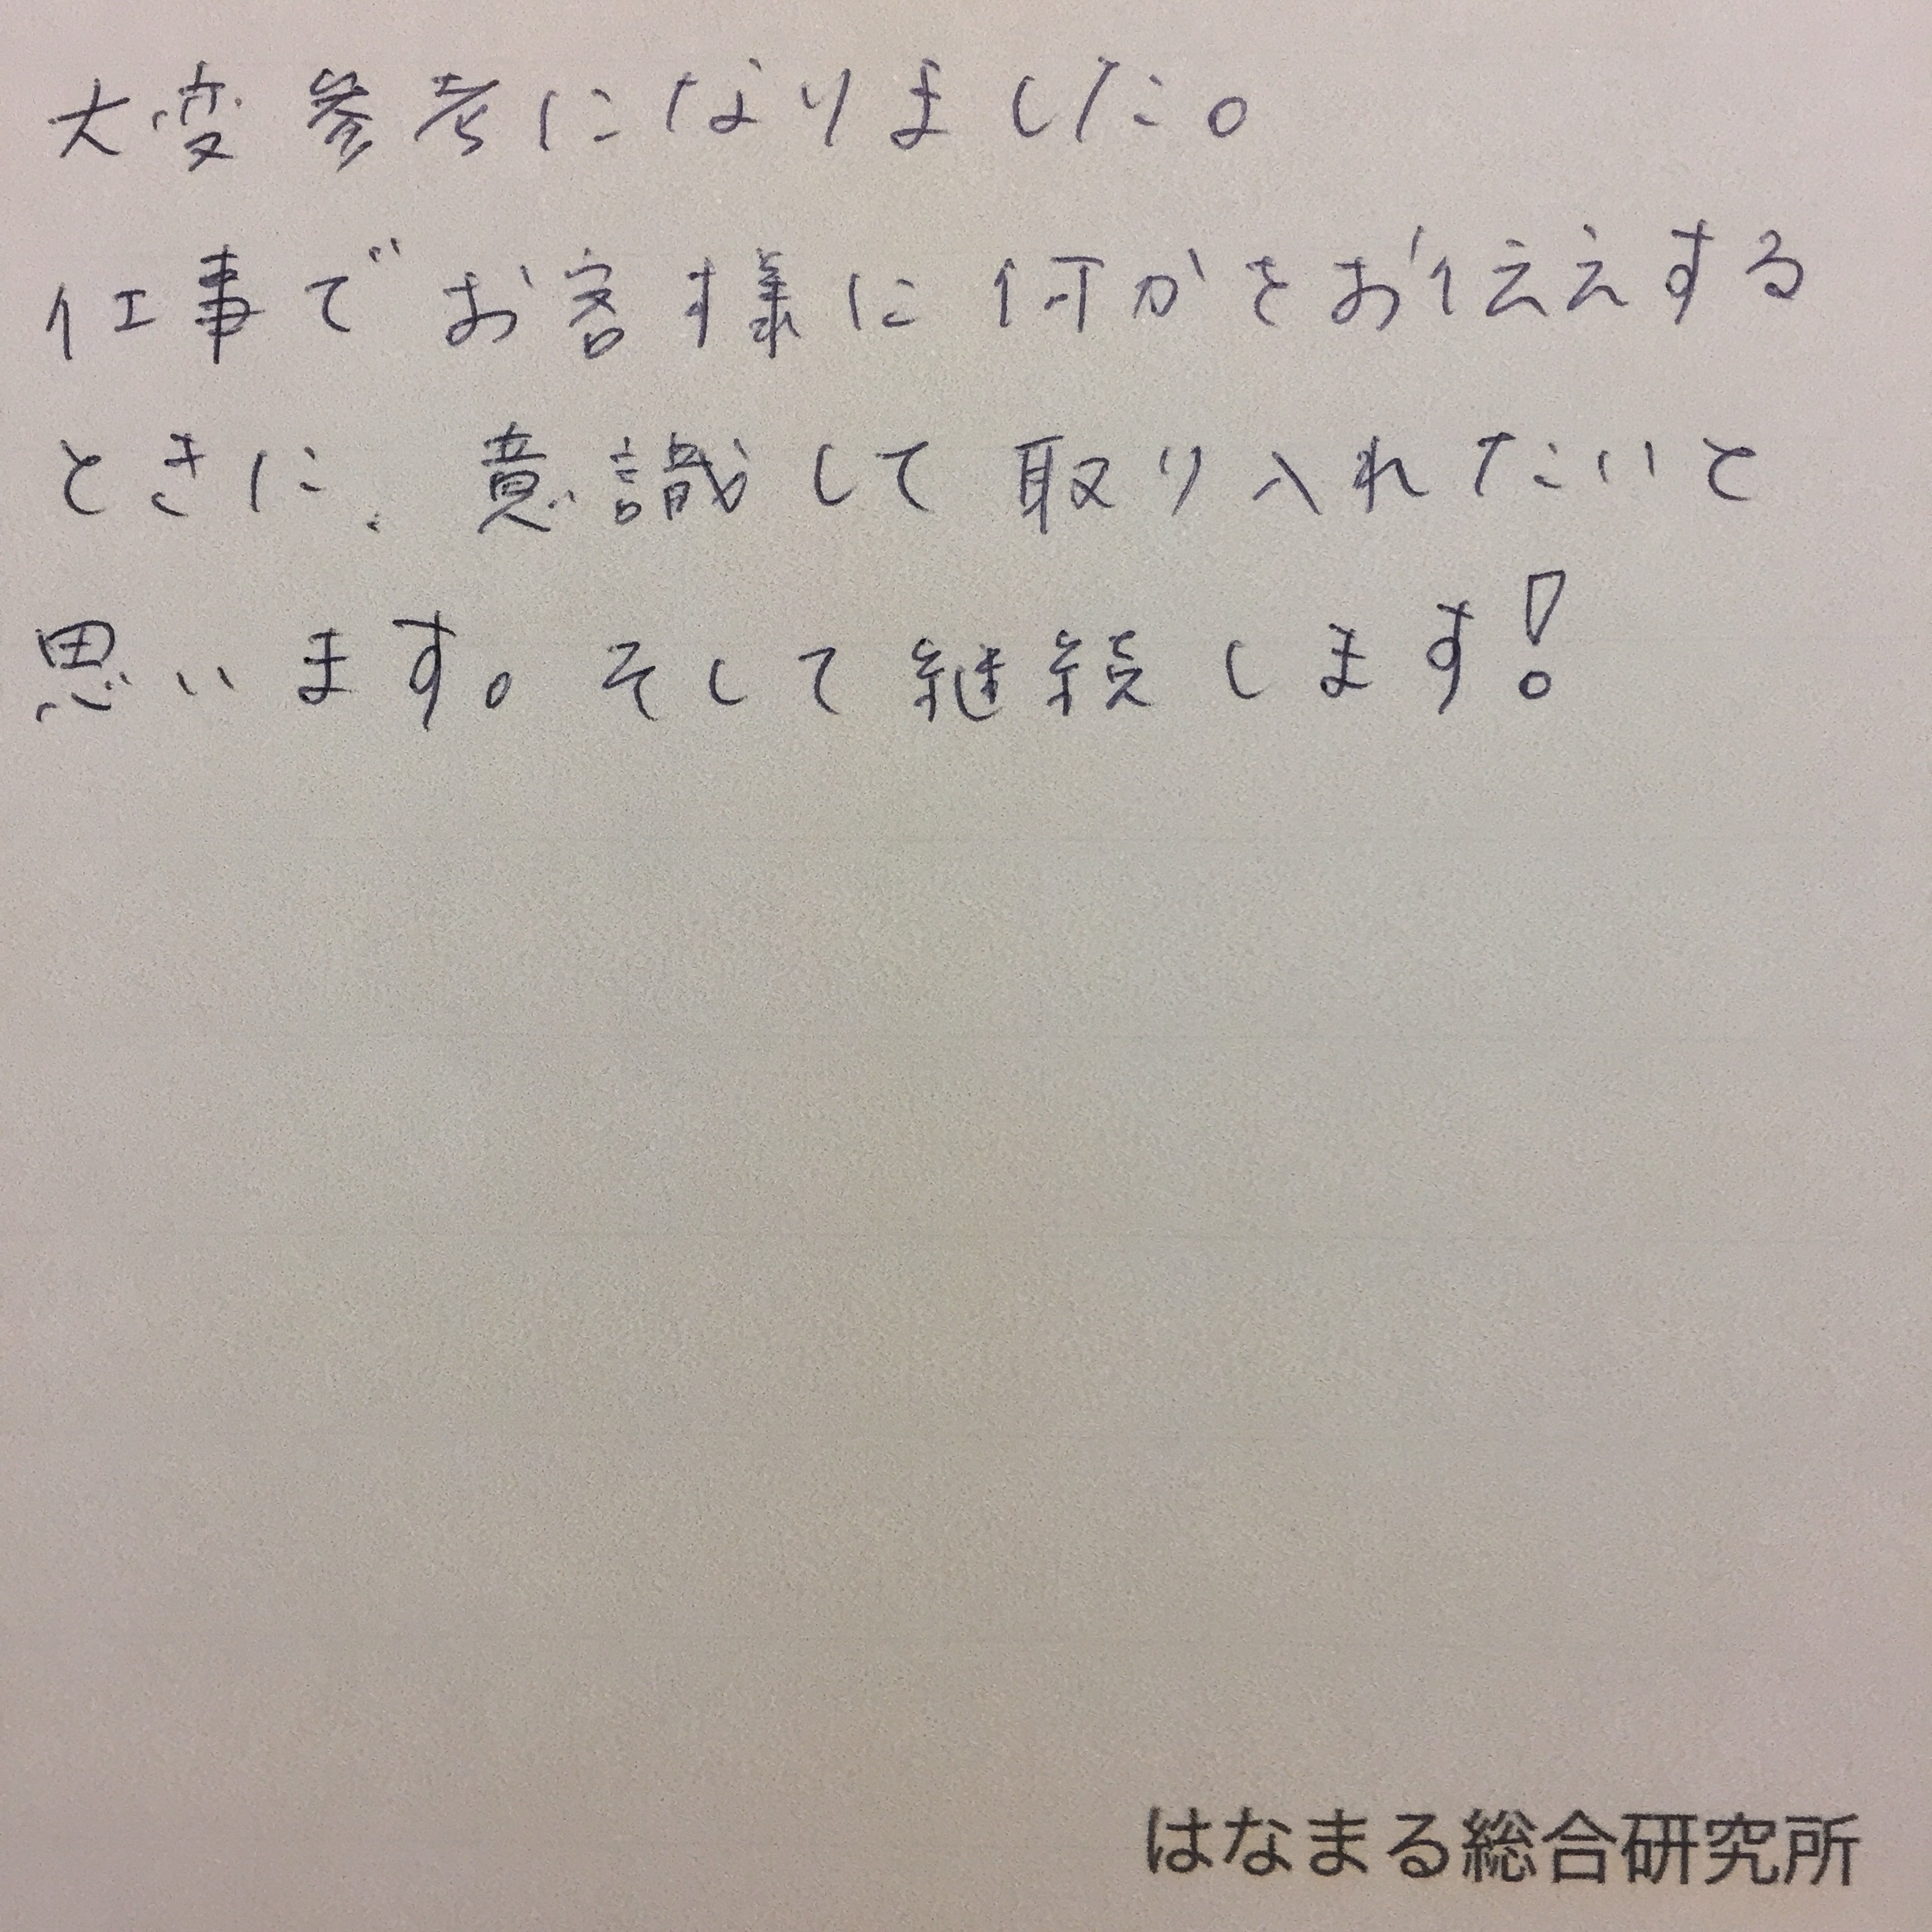 大変参考になりました。
仕事でお客様に何かをお伝えする
ときに、意識して取り入れたいと
思います。そして継続します!
はなまる総合研究所